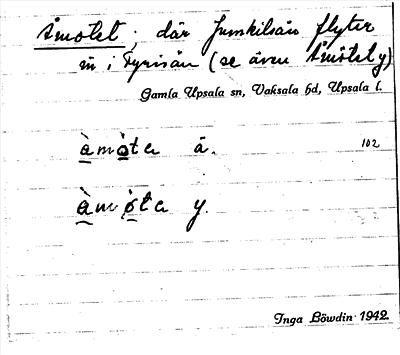 Åmötet, där Jumkilsån flyter
in i Fyrisån (se även Åmötet y)
Gamla Upsala sn, Vaksala hd, Upsala l.
å̀mö̀ta ä. 102
å̀mö̀ta y.
Inga Löwdin 1942.